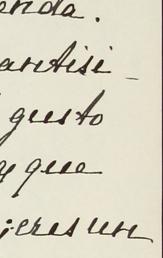 enda.
antisi-
gusto
y que
; eres un